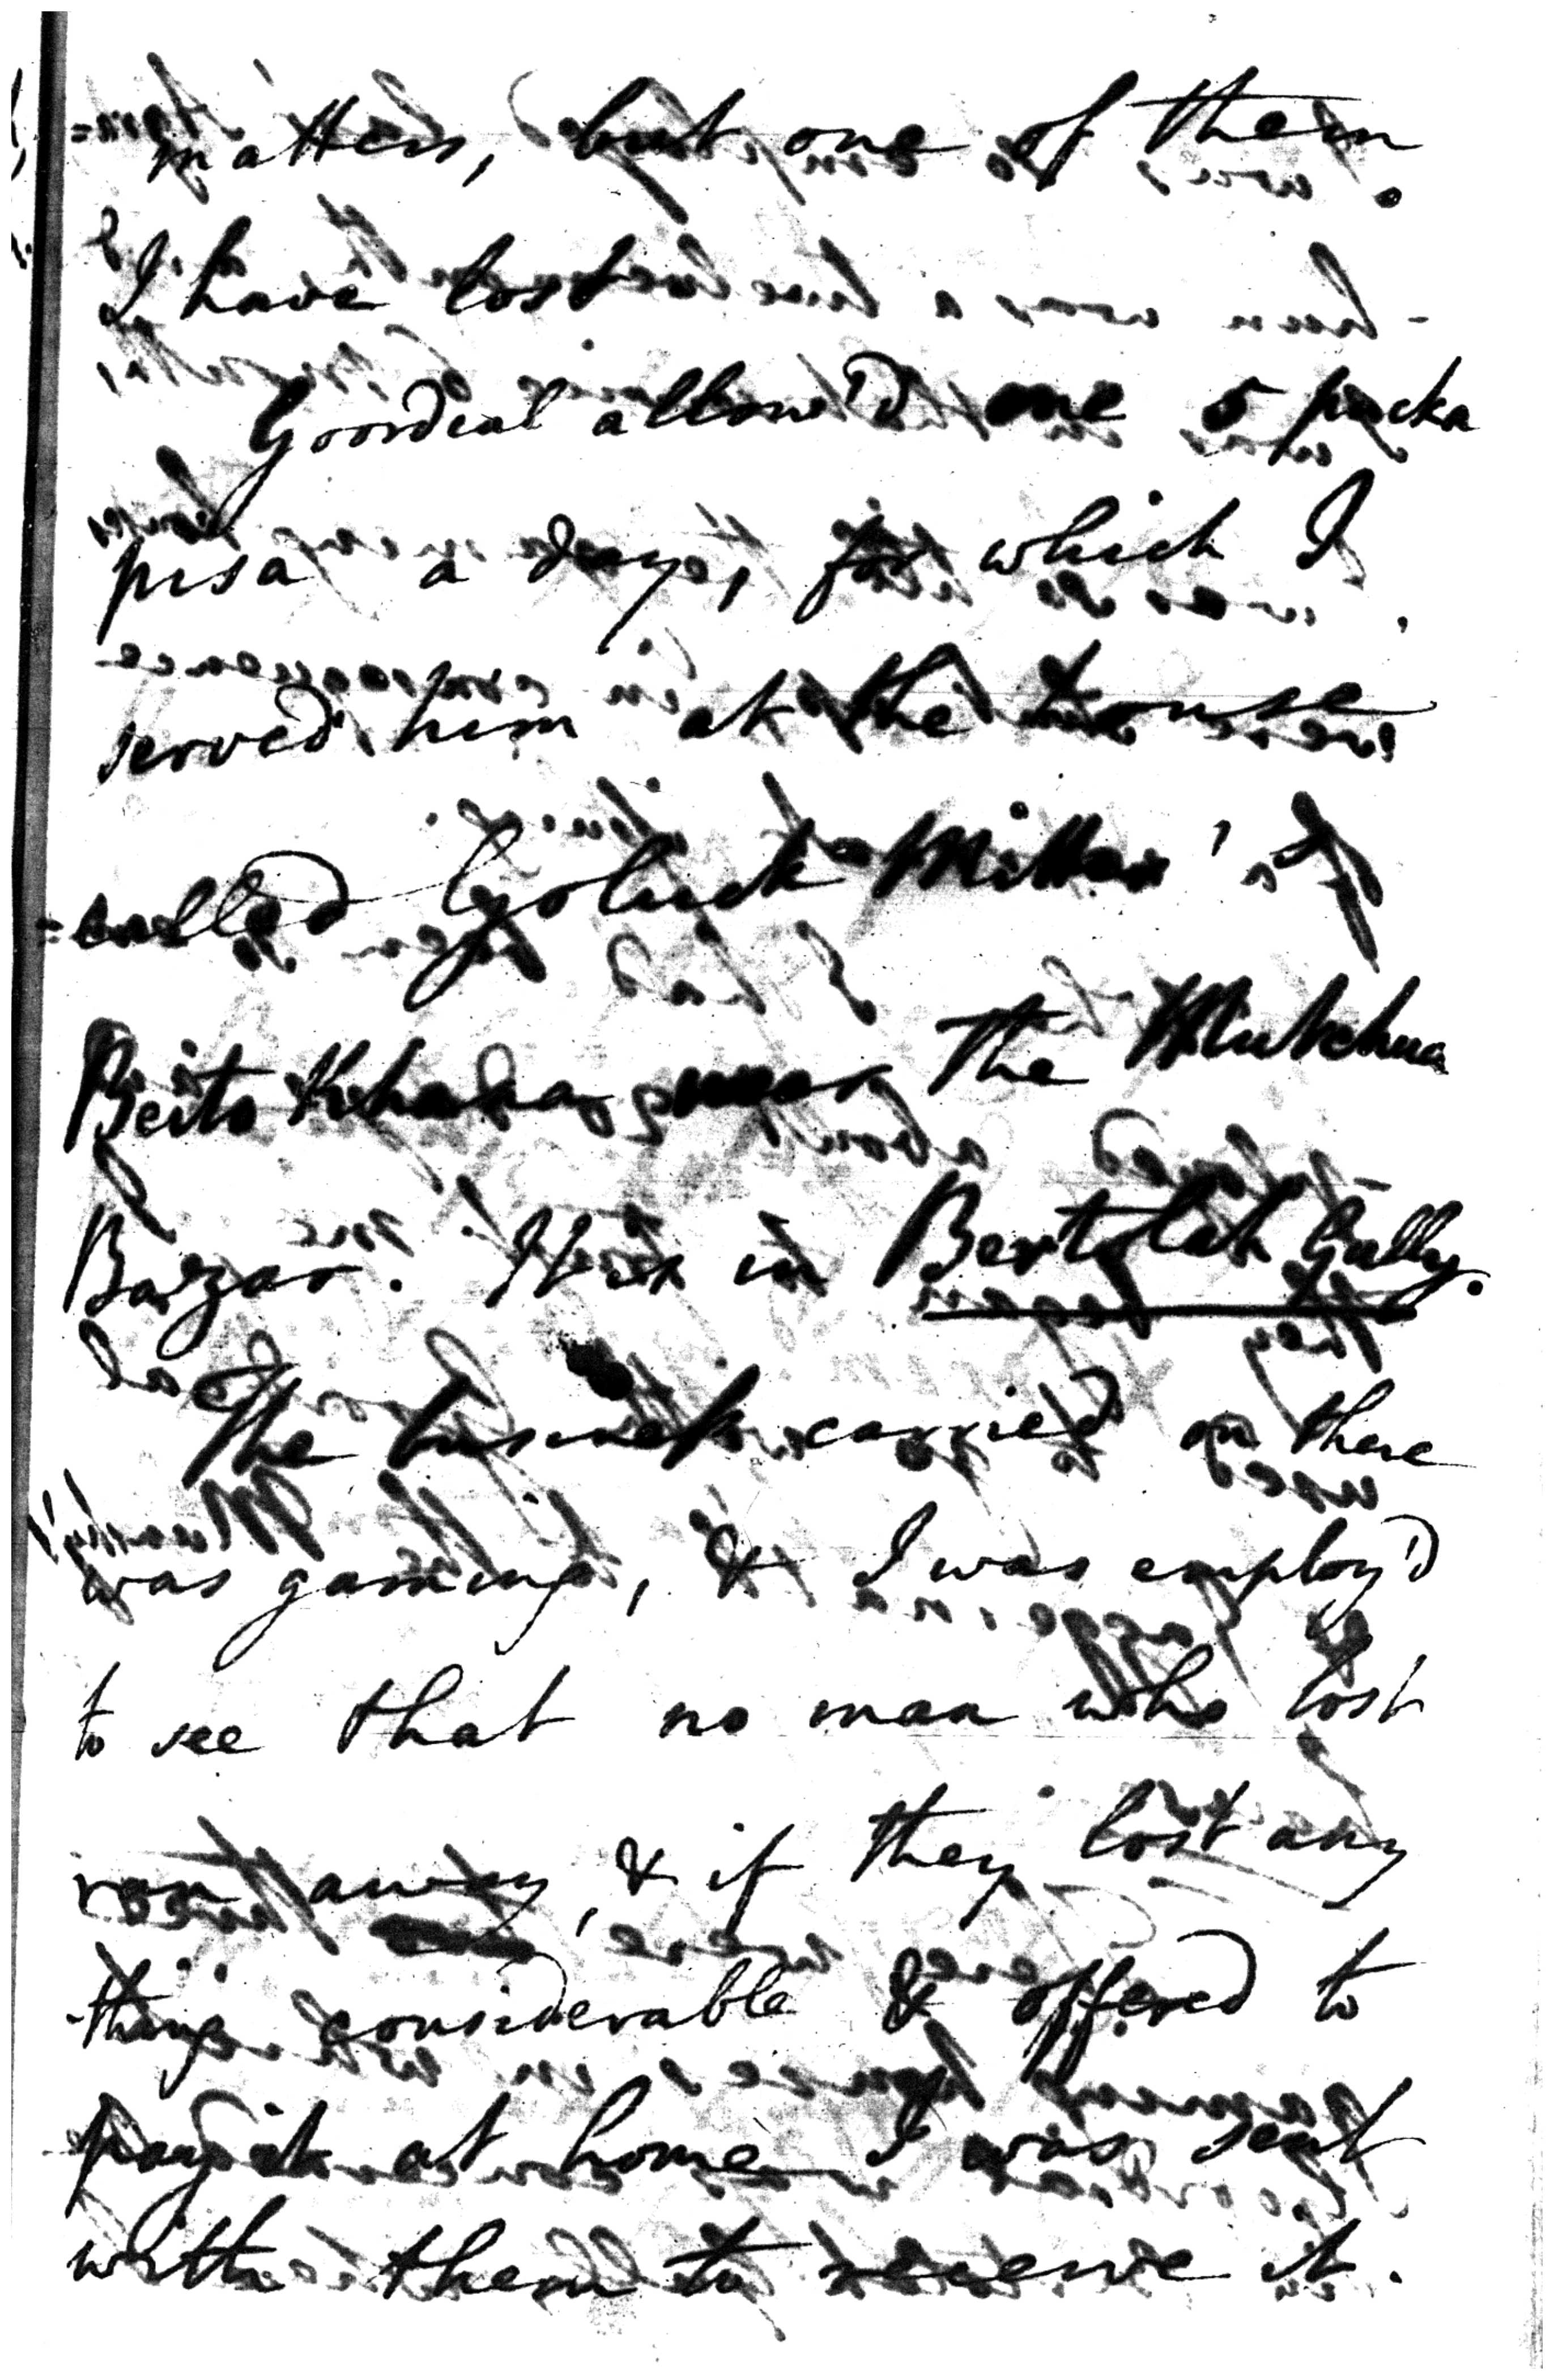 matters, but one of them
I have lost
Goordial allow'd me 5 pucka
pisa a day, for which I
served him at the house
called Goluck Mitter's
Beito Khana near the Mutchua
Bazar. It is in Bertolah Gully.
The business carried on there
was gaming, & I was employ'd
to see that no man who lost
ran away, & if they lost any
thing considerable & offered to
pay it at home I was sent
with them to receive it.